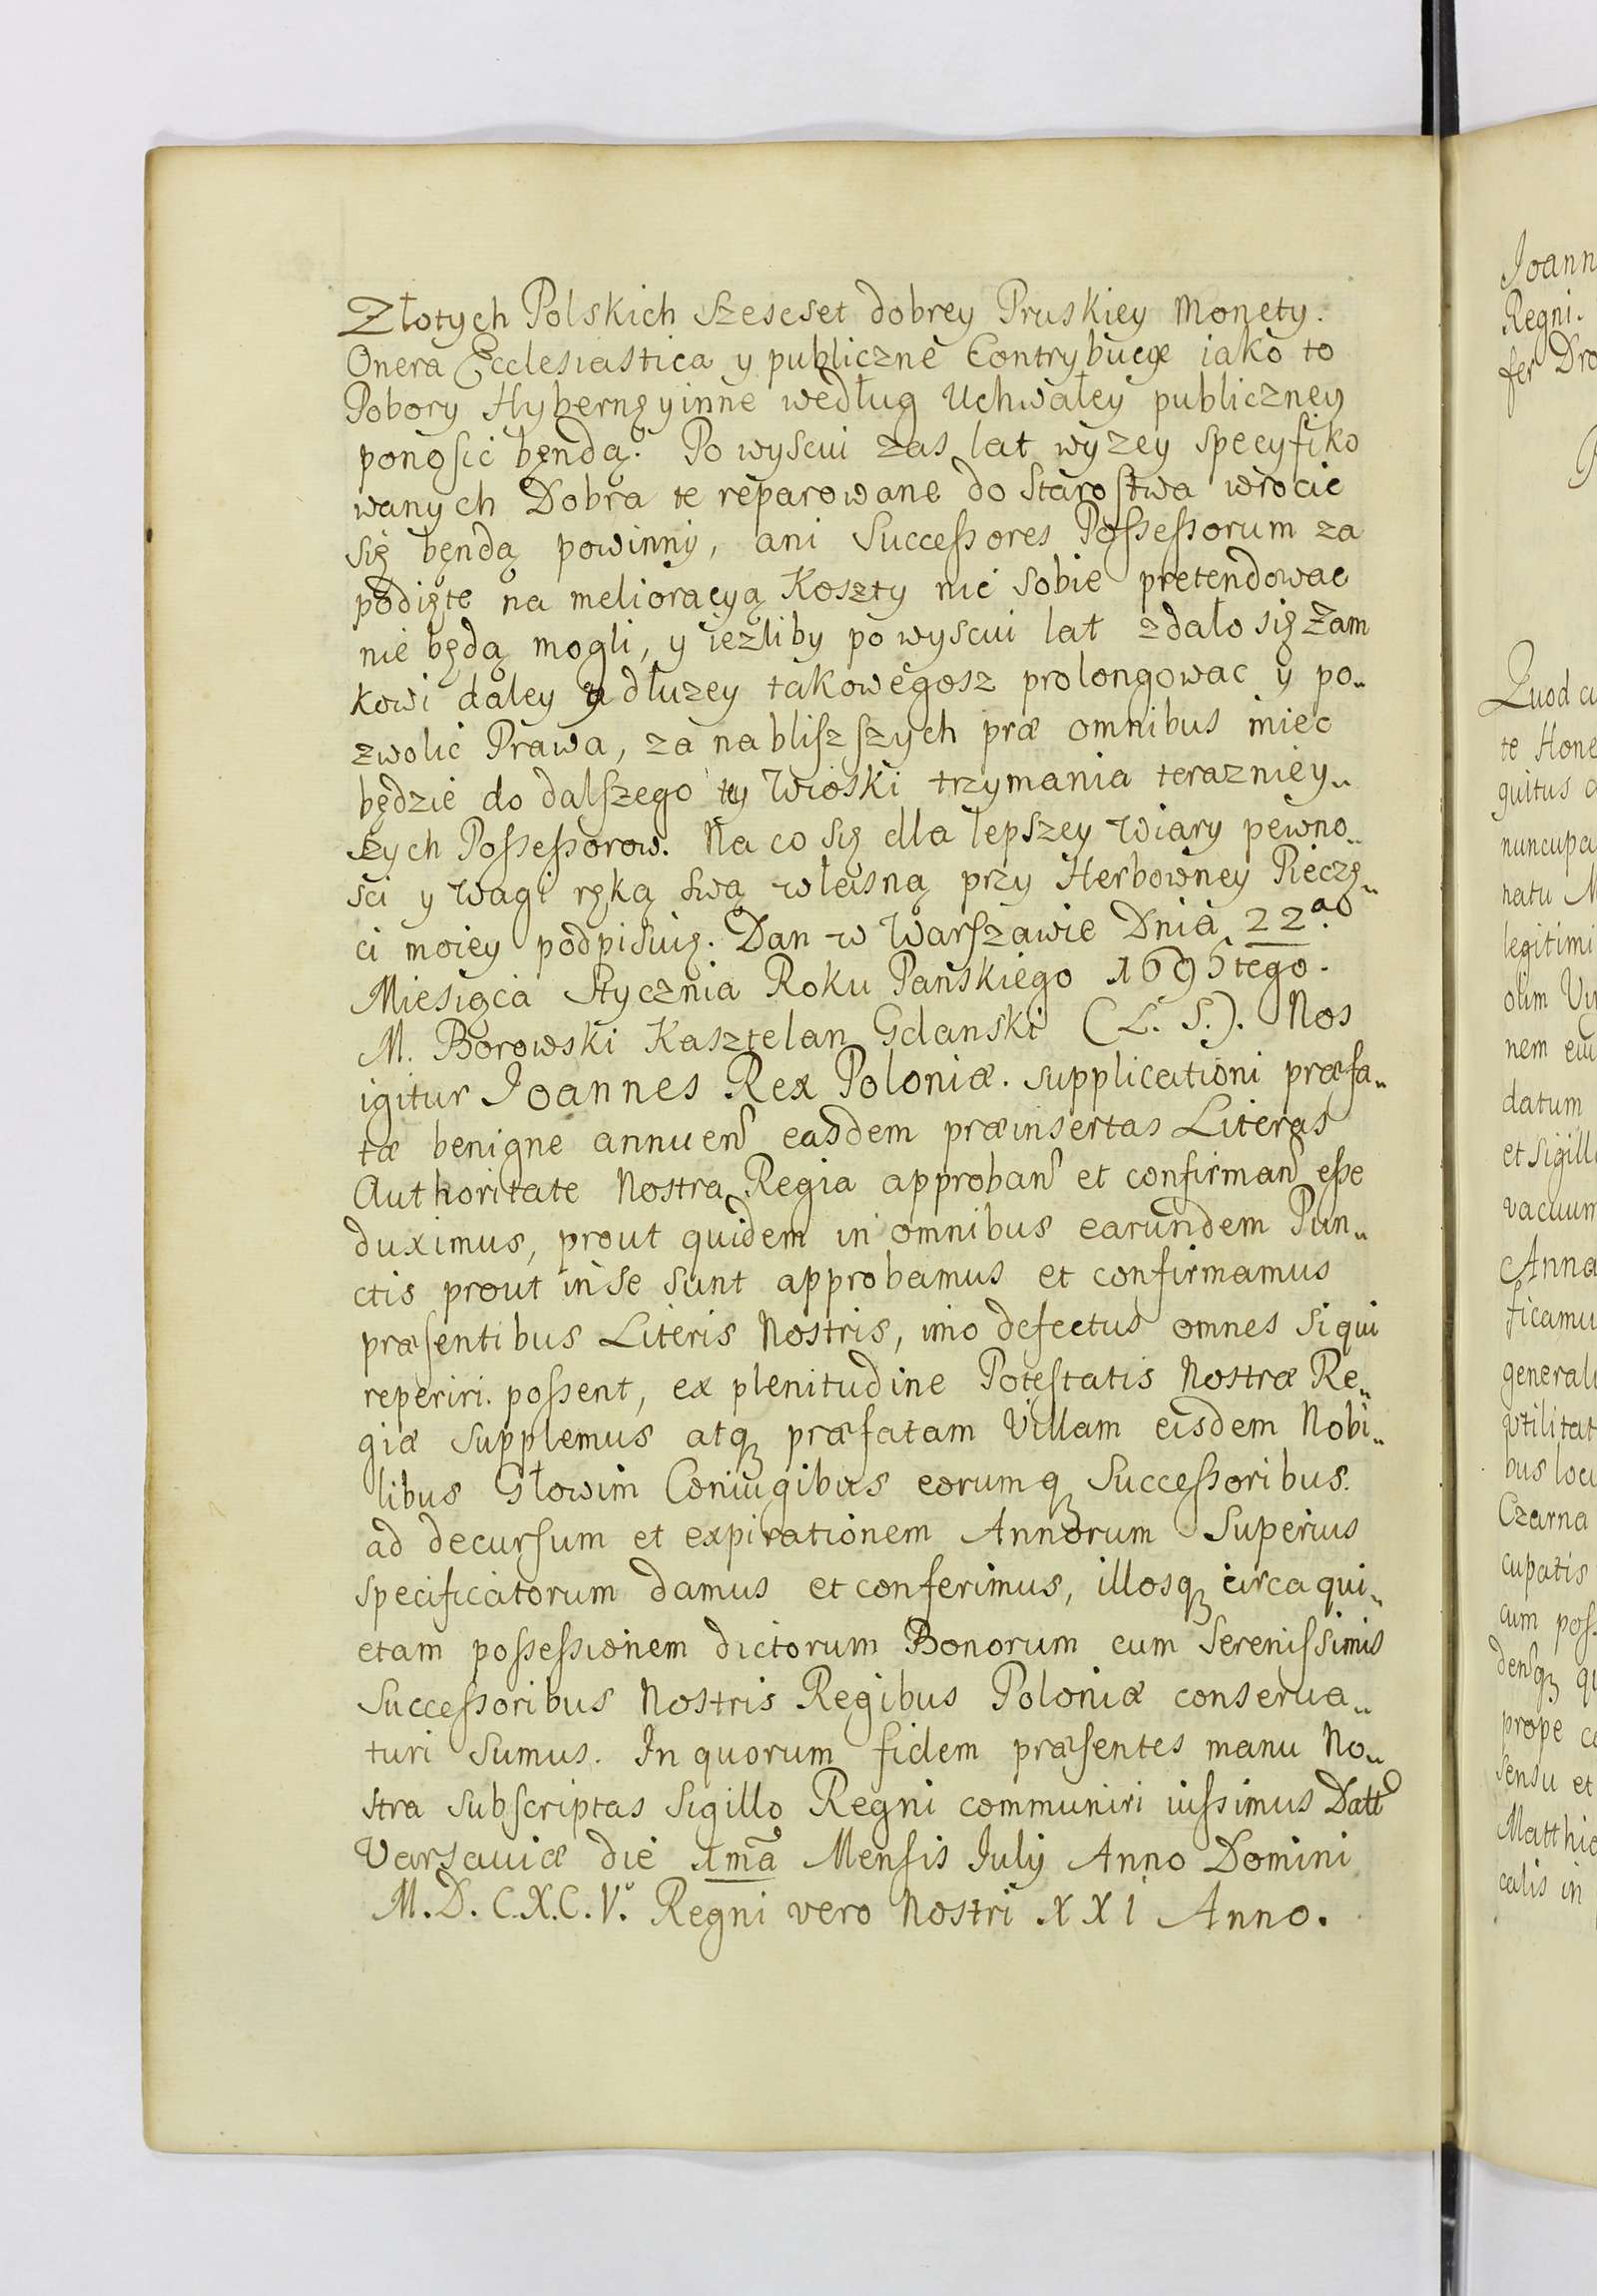 Złotych Polskich szescset dobrey Pruskiey Monety.
Onera Ecclesiastica y publiczne Contrybucye iako to
Pobory Hybernę yinne według Uchwałey publiczney
ponosic bęndą. Po wyscui zas lat wyzey specyfiko
wanych Dobra te reparowane do Starostwa wrocic
się bęndą powinny, ani Successores Possessorum za
podięte na melioracyą Koszty nic sobie pretendowac
nie będą mogli, y iezliby po wyscui lat zdało się Zam
kowi daley y dłuzey takowegosz prolongowac y po„
zwolic Prawa, za nabliszszych præ omnibus miec
będzie do dalszego tey Wioski trzymania terazniey„
szych Possessorow. Na co się dla lepszey wiary pewno„
sci y wagi ręką swą własną przy Herbowney Pieczę„
ci moiey podpisuię. Dan w Warszawie Dnia 22.ao
Miesięca Stycznia Roku Panskiego 1695tego.
M. Borowski Kasztelan Gdanski (L. S.). Nos
igitur Joannes Rex Poloniæ. supplicationi præfa„
tæ benigne annuen̄ easdem præinsertas Literas
Authoritate Nostra Regia approban̄ et confirman̄ esse
duximus, prout quidem in omnibus earundem Pun„
ctis prout in se sunt approbamus et confirmamus
præsentibus Literis Nostris, imo defectus omnes siqui
reperiri. possent, ex plenitudine Potestatis Nostræ Re„
giæ supplemus atqȝ præfatam Villam eisdem Nobi„
libus Głowim Coniugibus eorumqȝ Successoribus.
ad decursum et expirationem Annorum Superius
specificatorum damus et conferimus, illosqȝ circa qui„
etam possessionem dictorum Bonorum cum Serenissimis
Successoribus Nostris Regibus Poloniæ conserua„
turi sumus. In quorum fidem præsentes manu No„
stra subscriptas Sigillo Regni communiri iussimus Datt
Varsauiæ die 1mā Mensis July Anno Domini
M.D.C.X.C.V.o Regni vero Nostri XXI Anno.
Joann
Regni.
fer Dro
Quod cu
te Hone
guitus
nuncupa
natu M
legitimi
olim Vi
nem eiu
datum
et Sigill
vacuum
Anna
ficamu
general
vtilitat
bus loci
Czarna
cupatis
cum poss
densqȝ qu
prope c
sensu et
Matthi
calis in